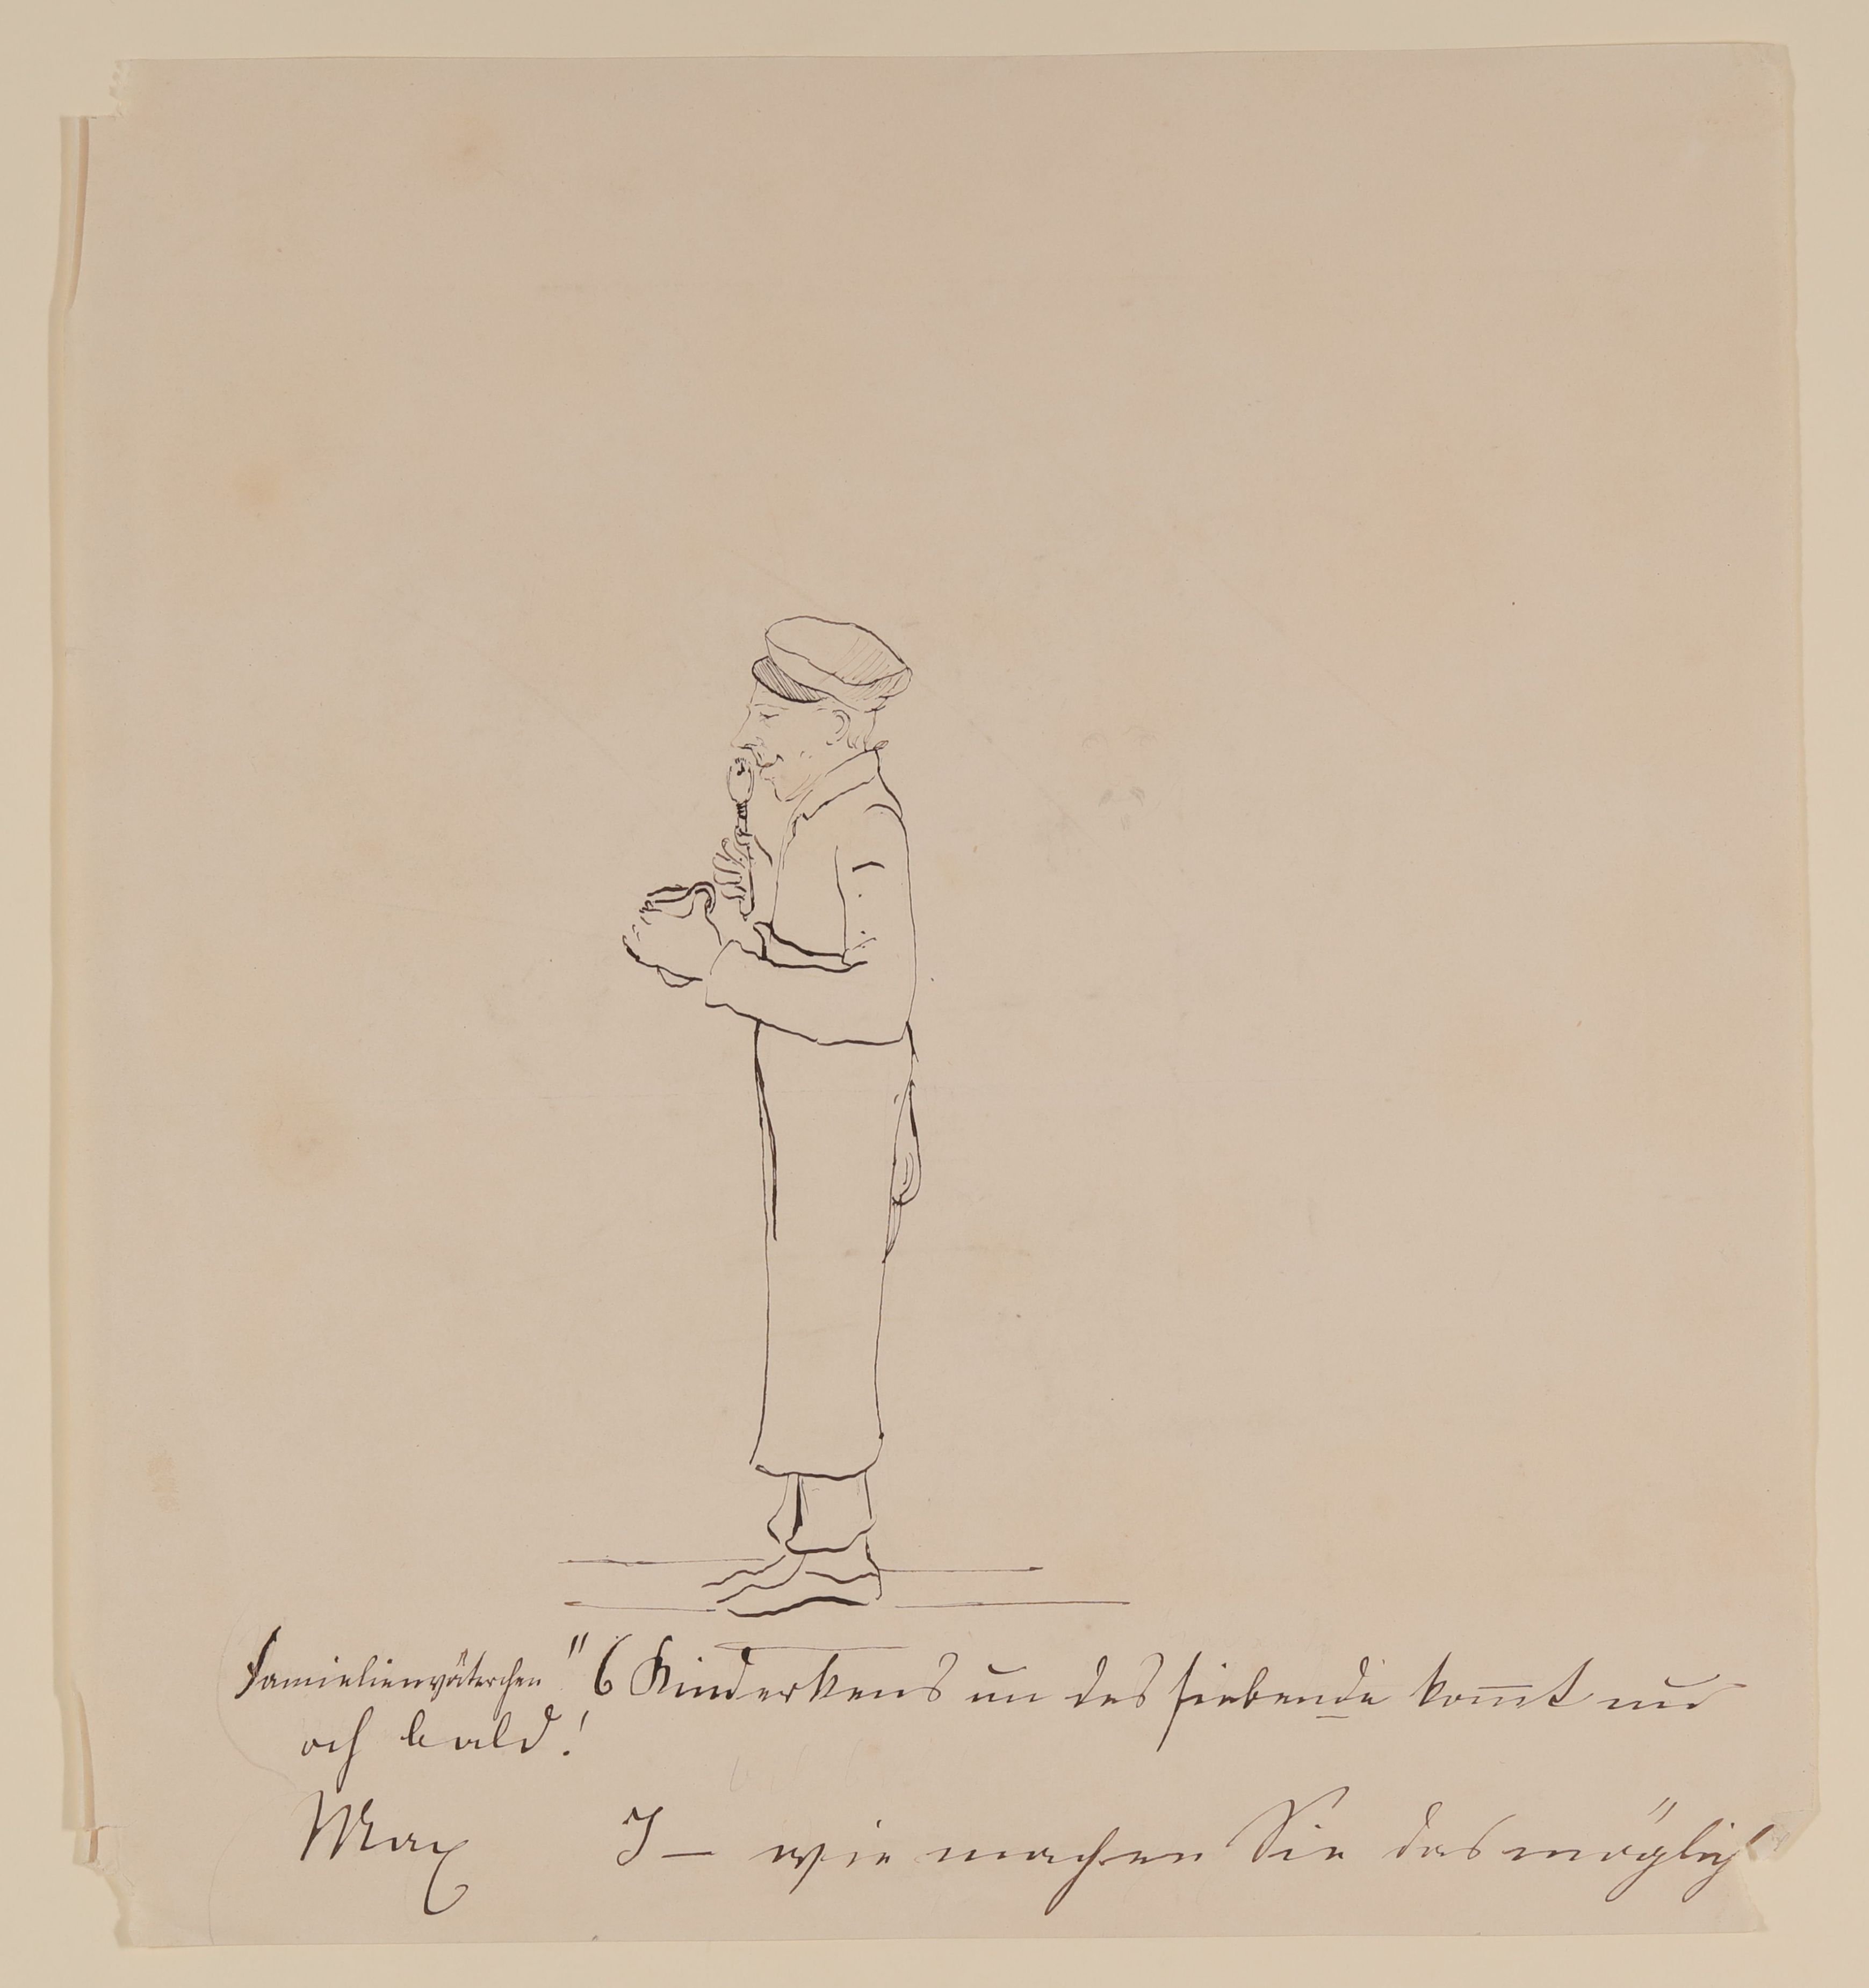 Famielienväterchen " 6 Kinderkens un des siebende kommt nur
och bald!
Max I — wie machen Sie das möglich